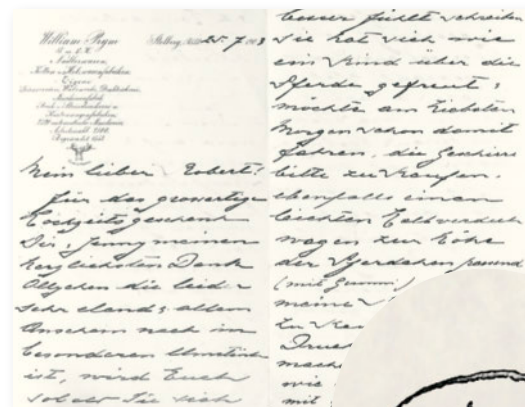 William Prym
G. m. b. H.
Stolberg, Rhld. 25. 7. 19
Eigene
Mein lieber Robert!
für das grossartige
Hochzeitsgeschenk
Dir & Jenny meinen
herzlichsten Dank
Öllychen die leider
sehr elend & allem
Anschein nach in
besonderen Umständ
ist, wird Euch
sobald Sie sich
besser fühlt schreiben
Sie hat sich wie
ein Kind über die
Pferde gefreut &
möchte am liebsten
Morgen schon damit
fahren, die Geschirre
bitte zu kaufen,
ebenfalls einen
leichten Halbverdeck
wagen zur Höhe
der Pferdchen passend
(mit Gummi)
meine
zu
mach
wie
mit